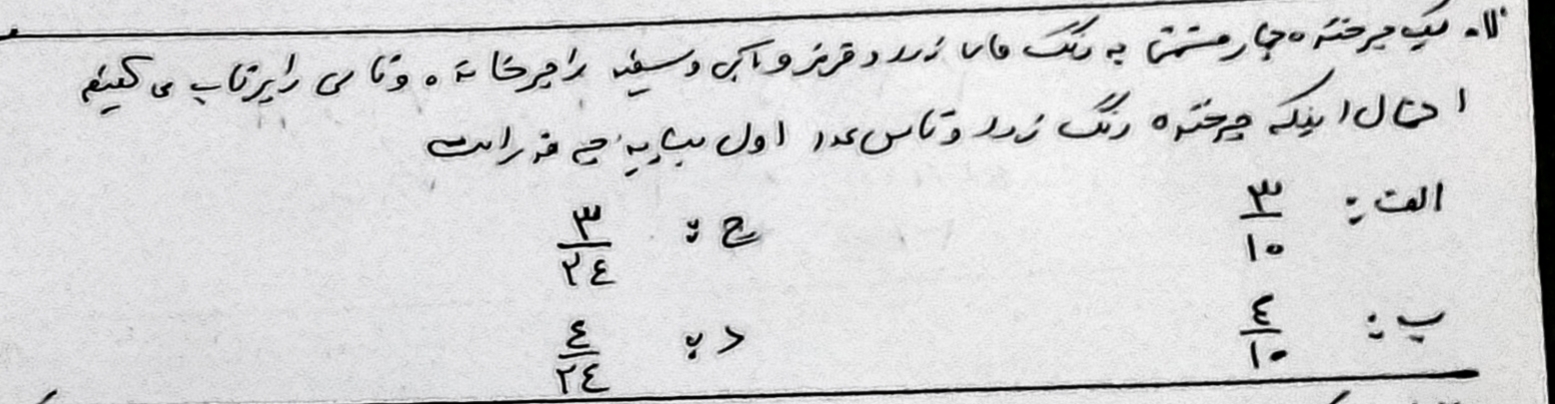 ۱۱. یک چرخنده چهار قسمتی به رنگ های زرد و قرمز و آبی و سفید را چرخانده و تاسی را پرتاب می کنیم
احتمال اینکه چرخنده رنگ زرد و تاس عدد اول بیاید چقدر است
الف: ۳/۱۰ ج: ۳/۲۴
ب: ۴/۱۰ د: ۴/۲۴